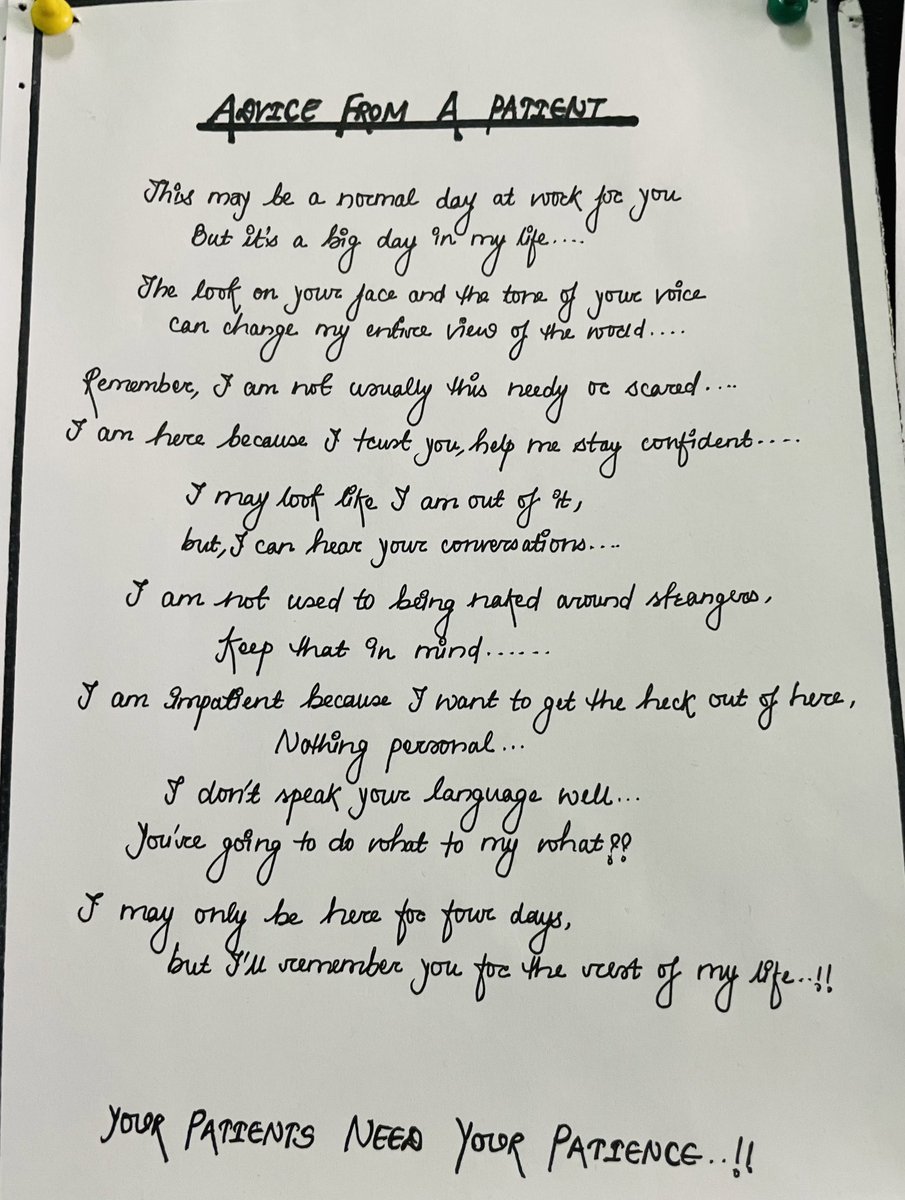 ADVICE FROM A PATIENT
This may be a normal day at work for you
But it's a big day in my life....
The look on your face and the tone of your voice
can change my entire view of the world....
Remember, I am not usually this needy or scared....
I am here because I trust you, help me stay confident....
I may look like I am out of it,
but, I can hear your conversations....
I am not used to being naked around strangers,
Keep that in mind......
I am impatient because I want to get the heck out of here,
Nothing personal...
I don't speak your language well...
You're going to do what to my what??
I may only be here for four days,
but I'll remember you for the rest of my life..!!
YOUR PATIENTS NEED YOUR PATIENCE..!!